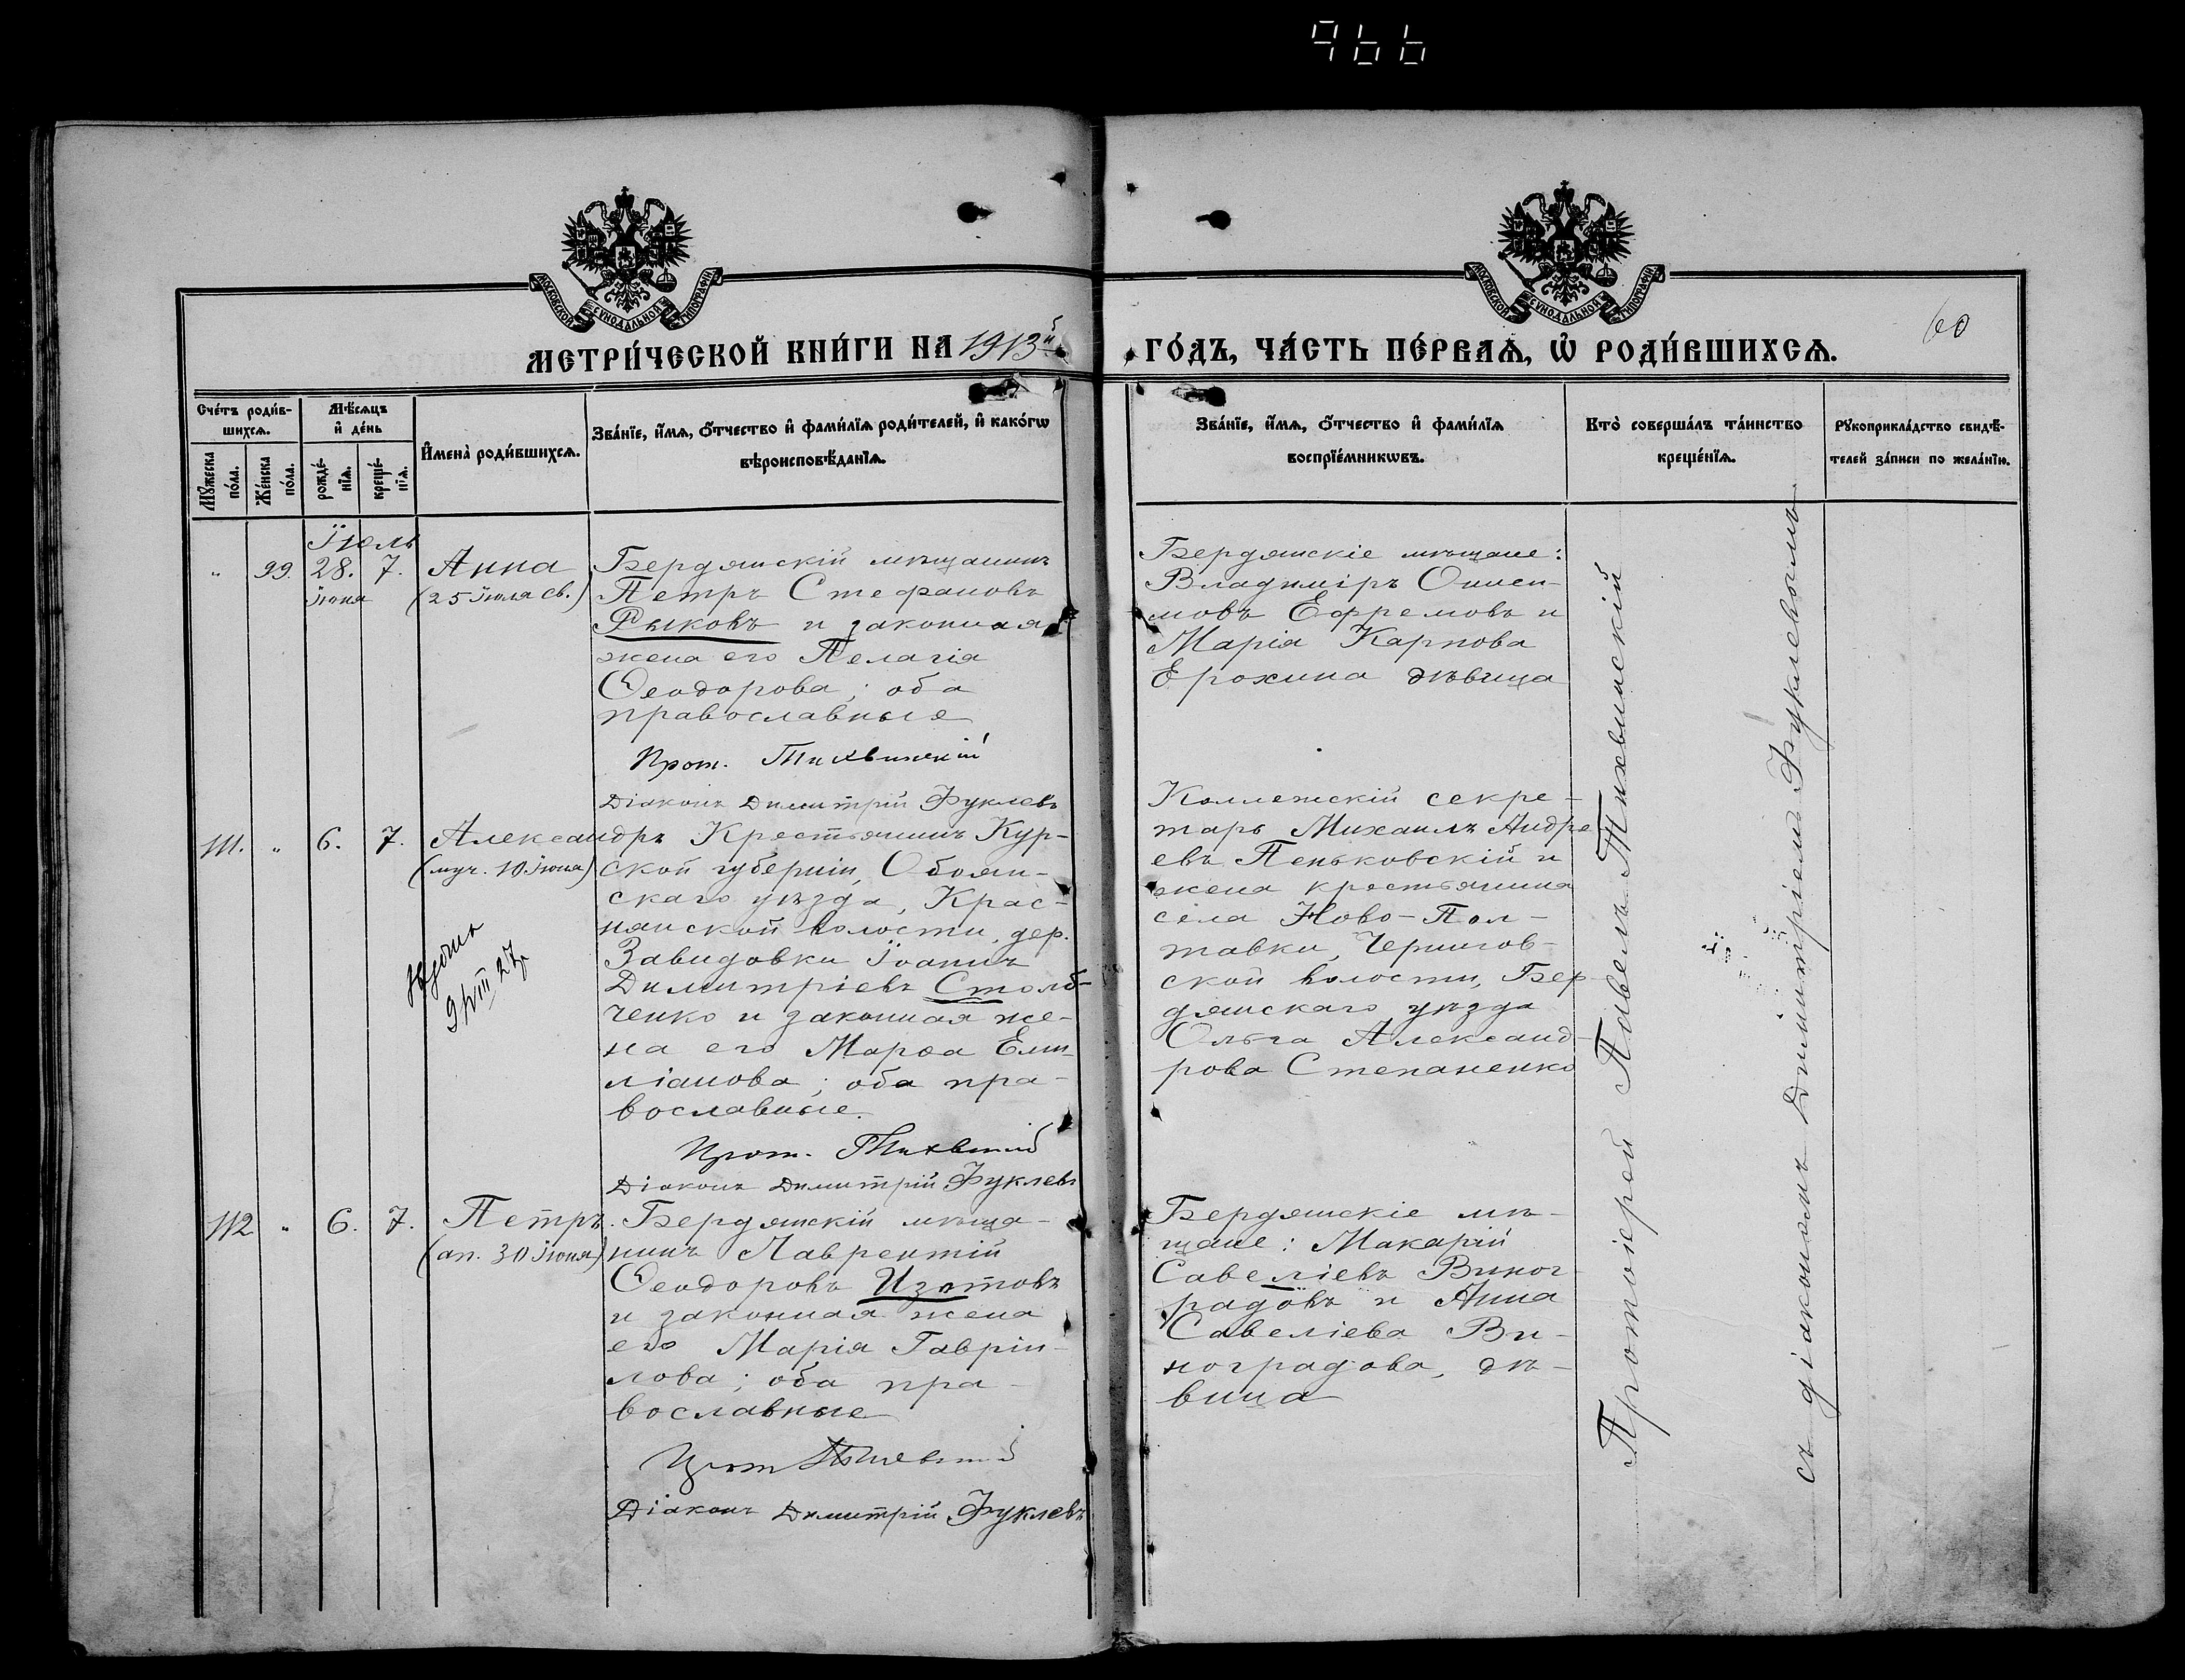 966
МОСКОВСКОЙ СѴНОДАЛЬНОЙ ТИПОГРАФІИ
МОСКОВСКОЙ СѴНОДАЛЬНОЙ ТИПОГРАФІИ
МЕТРИ́ЧЕСКОЙ КНИ́ГИ НА 1913й
ГО́ДЪ, ЧА́СТЬ ПЕ́РВАѦ, Ѽ РОДИ́ВШИХСѦ.
60
Сче́тъ роди́в-
шихсѧ.
Мꙋ́жеска по́ла.
Же́нска по́ла.
Мѣ́сѧцъ
и҆ де́нь
рожде́-
нїѧ.
креще́-
нїѧ.
И҆мена̀ роди́вшихсѧ.
Зва́нїе, и҆́мѧ, ѻ҆́тчество и҆ фами́лїѧ роди́телей, и҆ како́гѡ
вѣроисповѣ́данїѧ.
Зва́нїе, и҆́мѧ, ѻ҆́тчество и҆ фами́лїѧ
воспрїе́мникѡвъ.
Кто̀ соверша́лъ та́инство
креще́нїѧ.
Рꙋкоприкла́дство свидѣ́-
телей за́писи по жела́нїю.
Іюль
" 99. 28. 7.
іюня
Анна
(25 іюля св.)
Бердянскій мѣщанинъ
Петръ Стефановъ
Рыковъ и законная
жена его Пелагія
Ѳеодорова; оба
православные
Прот. Тихвинскій
Діаконъ Димитрій Фуклевъ
Бердянскіе мѣщане:
Владиміръ Ониси-
мовъ Ефремовъ и
Марія Карпова
Ерохина дѣвица
111. " 6. 7.
Александръ
(муч. 10 іюня)
9/VIII 27
Крестьянинъ Кур-
ской губерніи, Обоян-
скаго уѣзда, Крас-
нянской волости, дер.
Завидовки Іоаннъ
Димитріевъ Столб-
ченко и законная же-
на его Марѳа Еми-
ліанова; оба пра-
вославные.
Прот. Тихвинскій
Діаконъ Димитрій Фуклевъ
Коллежскій секре-
тарь Михаилъ Андре
евъ Пеньковскій и
жена крестьянина
села Ново-Пол-
тавки, Чернигов-
ской волости, Бер-
дянскаго уѣзда
Ольга Александ-
рова Степаненко
112 " 6. 7.
Петръ.
(ап. 30 іюня)
Бердянскій мѣща-
нинъ Лаврентій
Ѳеодоровъ Изотовъ
и законная жена
его Марія Гавріи-
лова; оба пра-
вославные
Прот Тихвинскій
Діаконъ Димитрій Фуклевъ
Бердянскіе мѣ-
щане: Макарій
Савеліевъ Виног-
радовъ и Анна
Савеліева Ви-
ноградова, дѣ-
вица
Протоіерей Павелъ Тихвинскій
съ діакономъ Димитріемъ Фуклевымъ